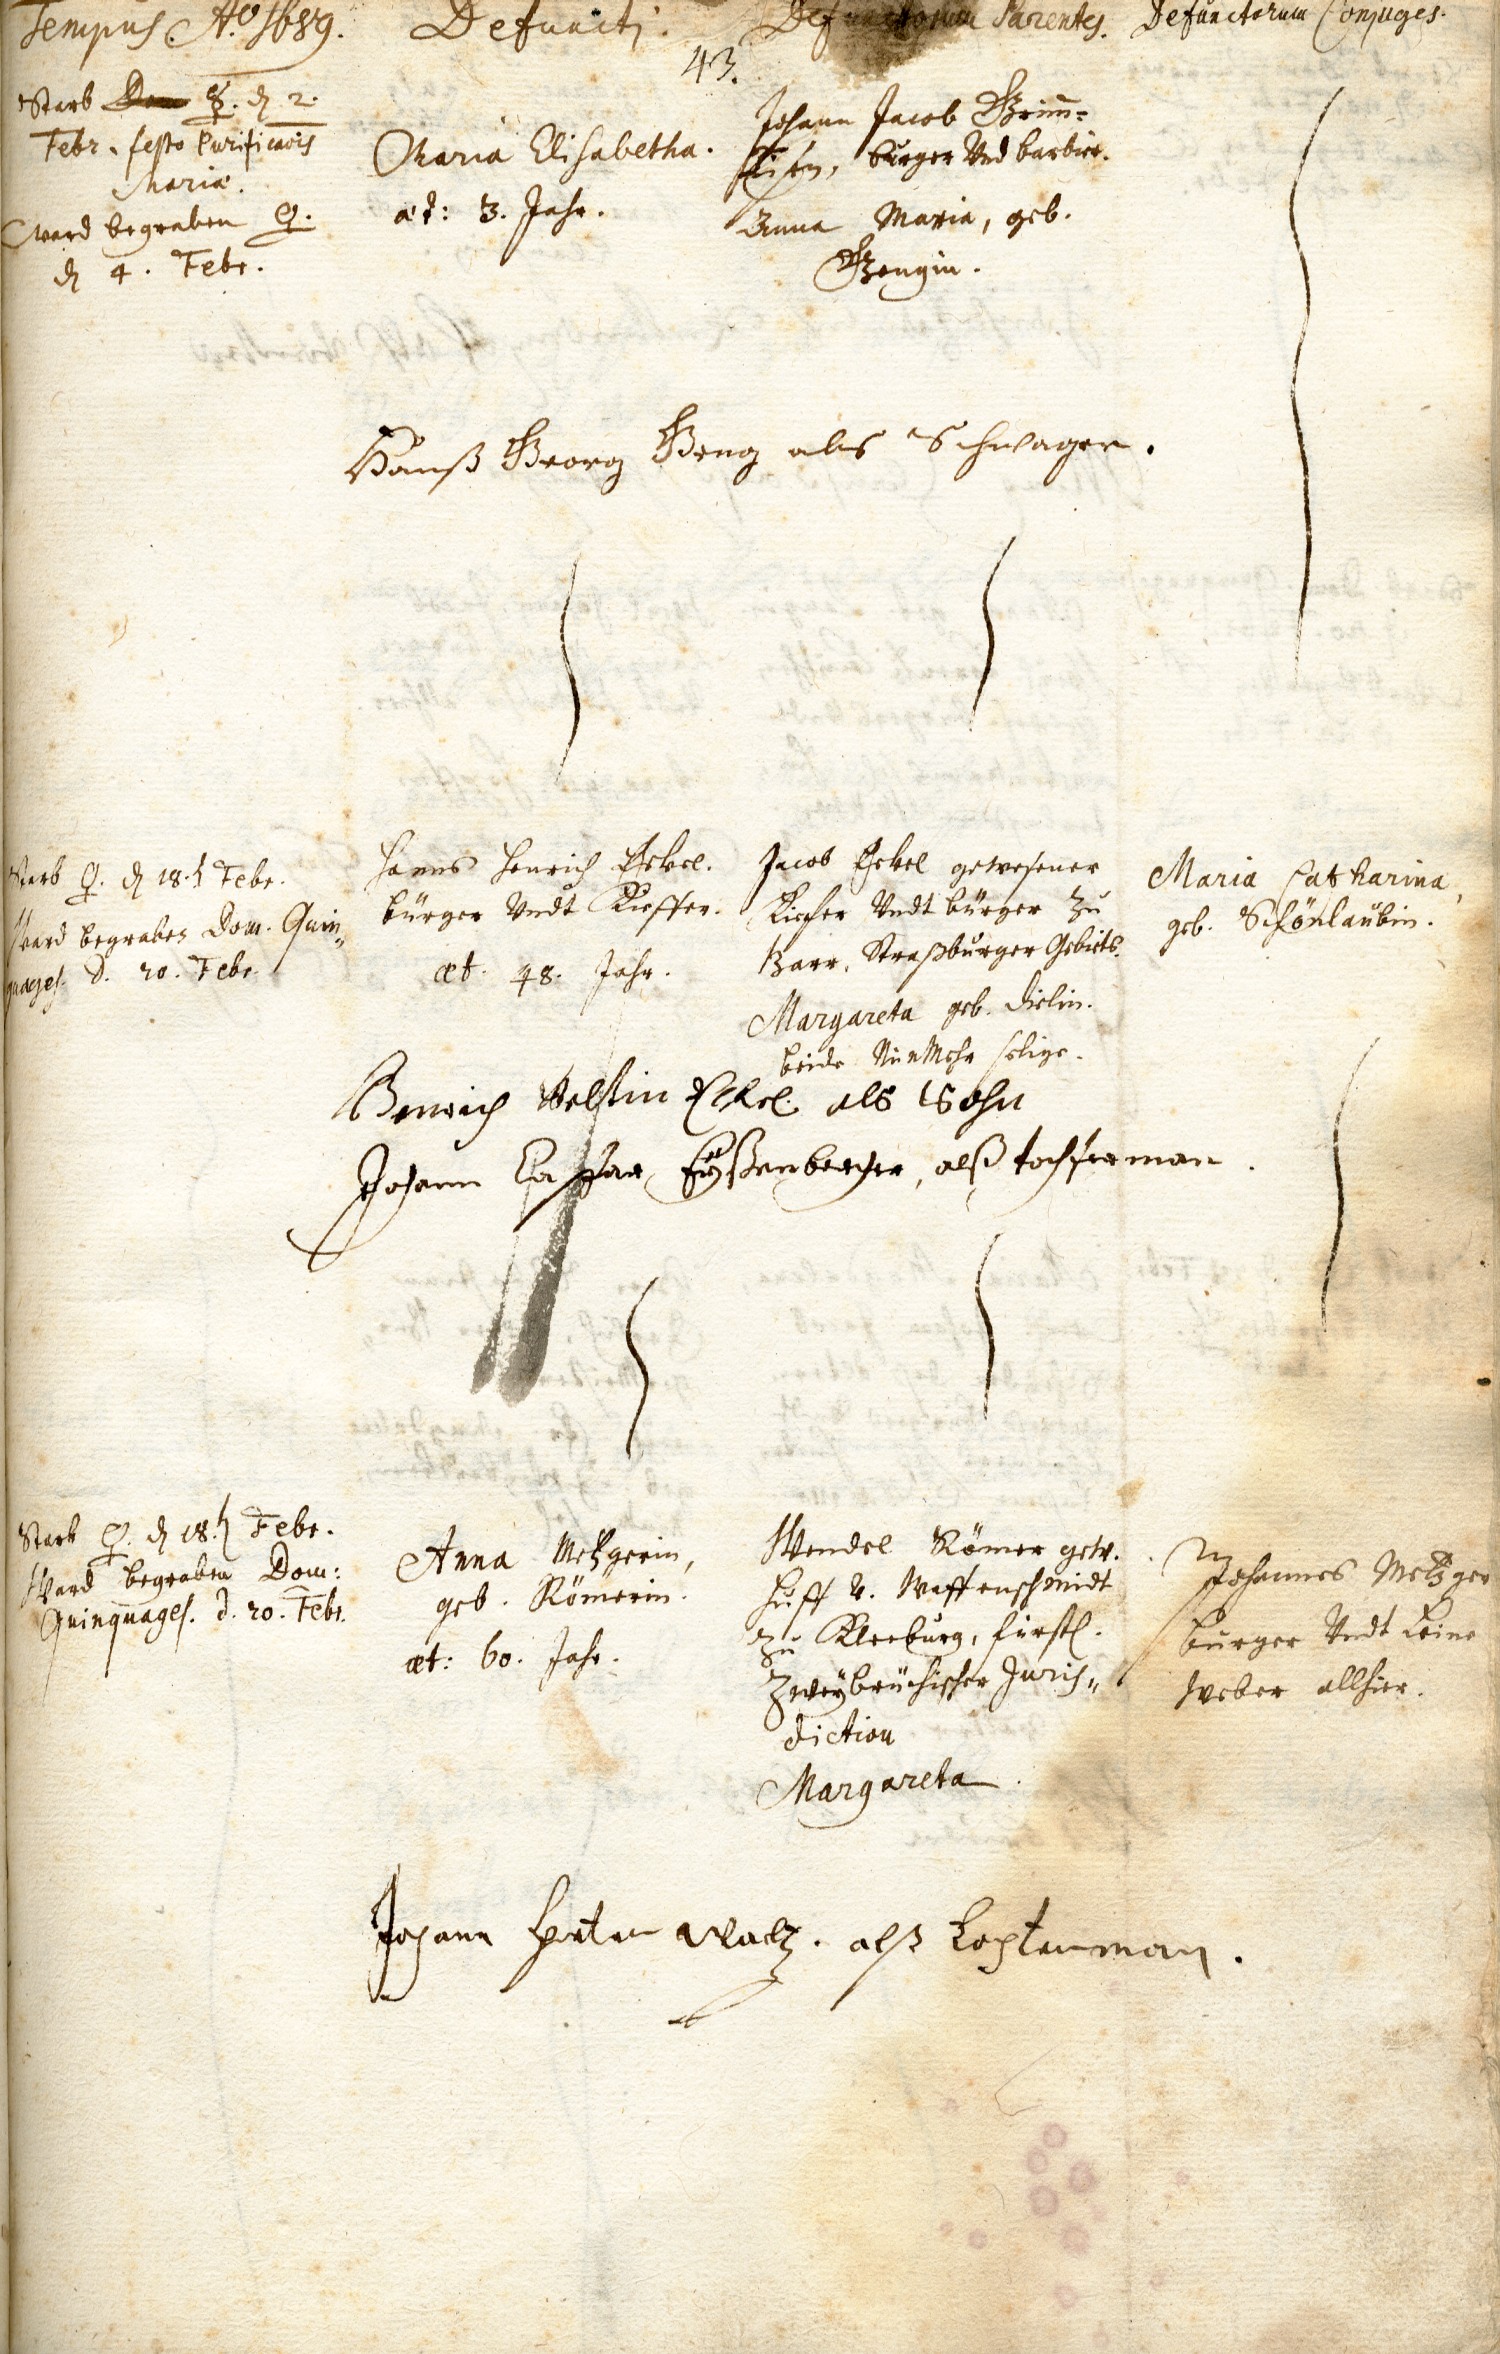 Tempus. Aō. 1689. Defuncti. Defunctorum Parentes. Defunctorum Conjuges.
43.
Starb ☿. d. 2.
Febr. festo Purificaōis
Mariæ.
Ward begraben ♀.
d. 4. Febr.
Maria Elisabetha.
æt: 3. Jahr.
Johann Jacob
burger Vnd barbier.
Anna Maria, geb.
Gengin.
Hanß Georg Geng als Schwager.
Starb ♀. d. 18. Febr.
Ward begraben Dom. Quin„
quages. d. 20. Febr.
Hanns Henrich Eckel.
bürger Vndt Kieffer.
æt. 48. Jahr.
Jacob Eckel gewesener
Kiefer Vndt bürger Zu
Barr, Straßburger Gebiets.
Margareta geb. Dielin.
beide NunMehr selige.
Maria Catharina,
geb. Schönlaubin.
Henrich Eckel als Sohn
Johann Caspar alß tochterman.
Starb ♀. d. 18. Febr.
Ward begraben Dom:
Quinquages. d. 20. Febr.
Anna Metzgerin,
geb. Römerin.
æt: 60. Jahr.
Wendel Römer gew.
Huff v. Waffenschmidt
Zu Kleeburg, fürstl.
Zweybrückischer Juris„
diction
Margareta.
Johannes Metzger
burger Vndt Leine
weber allhier.
Johann Peter Waltz. alß tochterman.